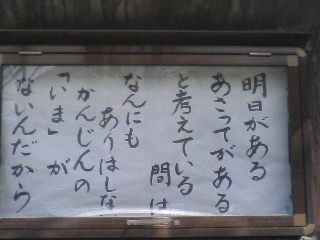 明日がある
あさってがある
と考えている
間は
なんにも
ありはしな
かんじんの
「いま」が
ないんだから